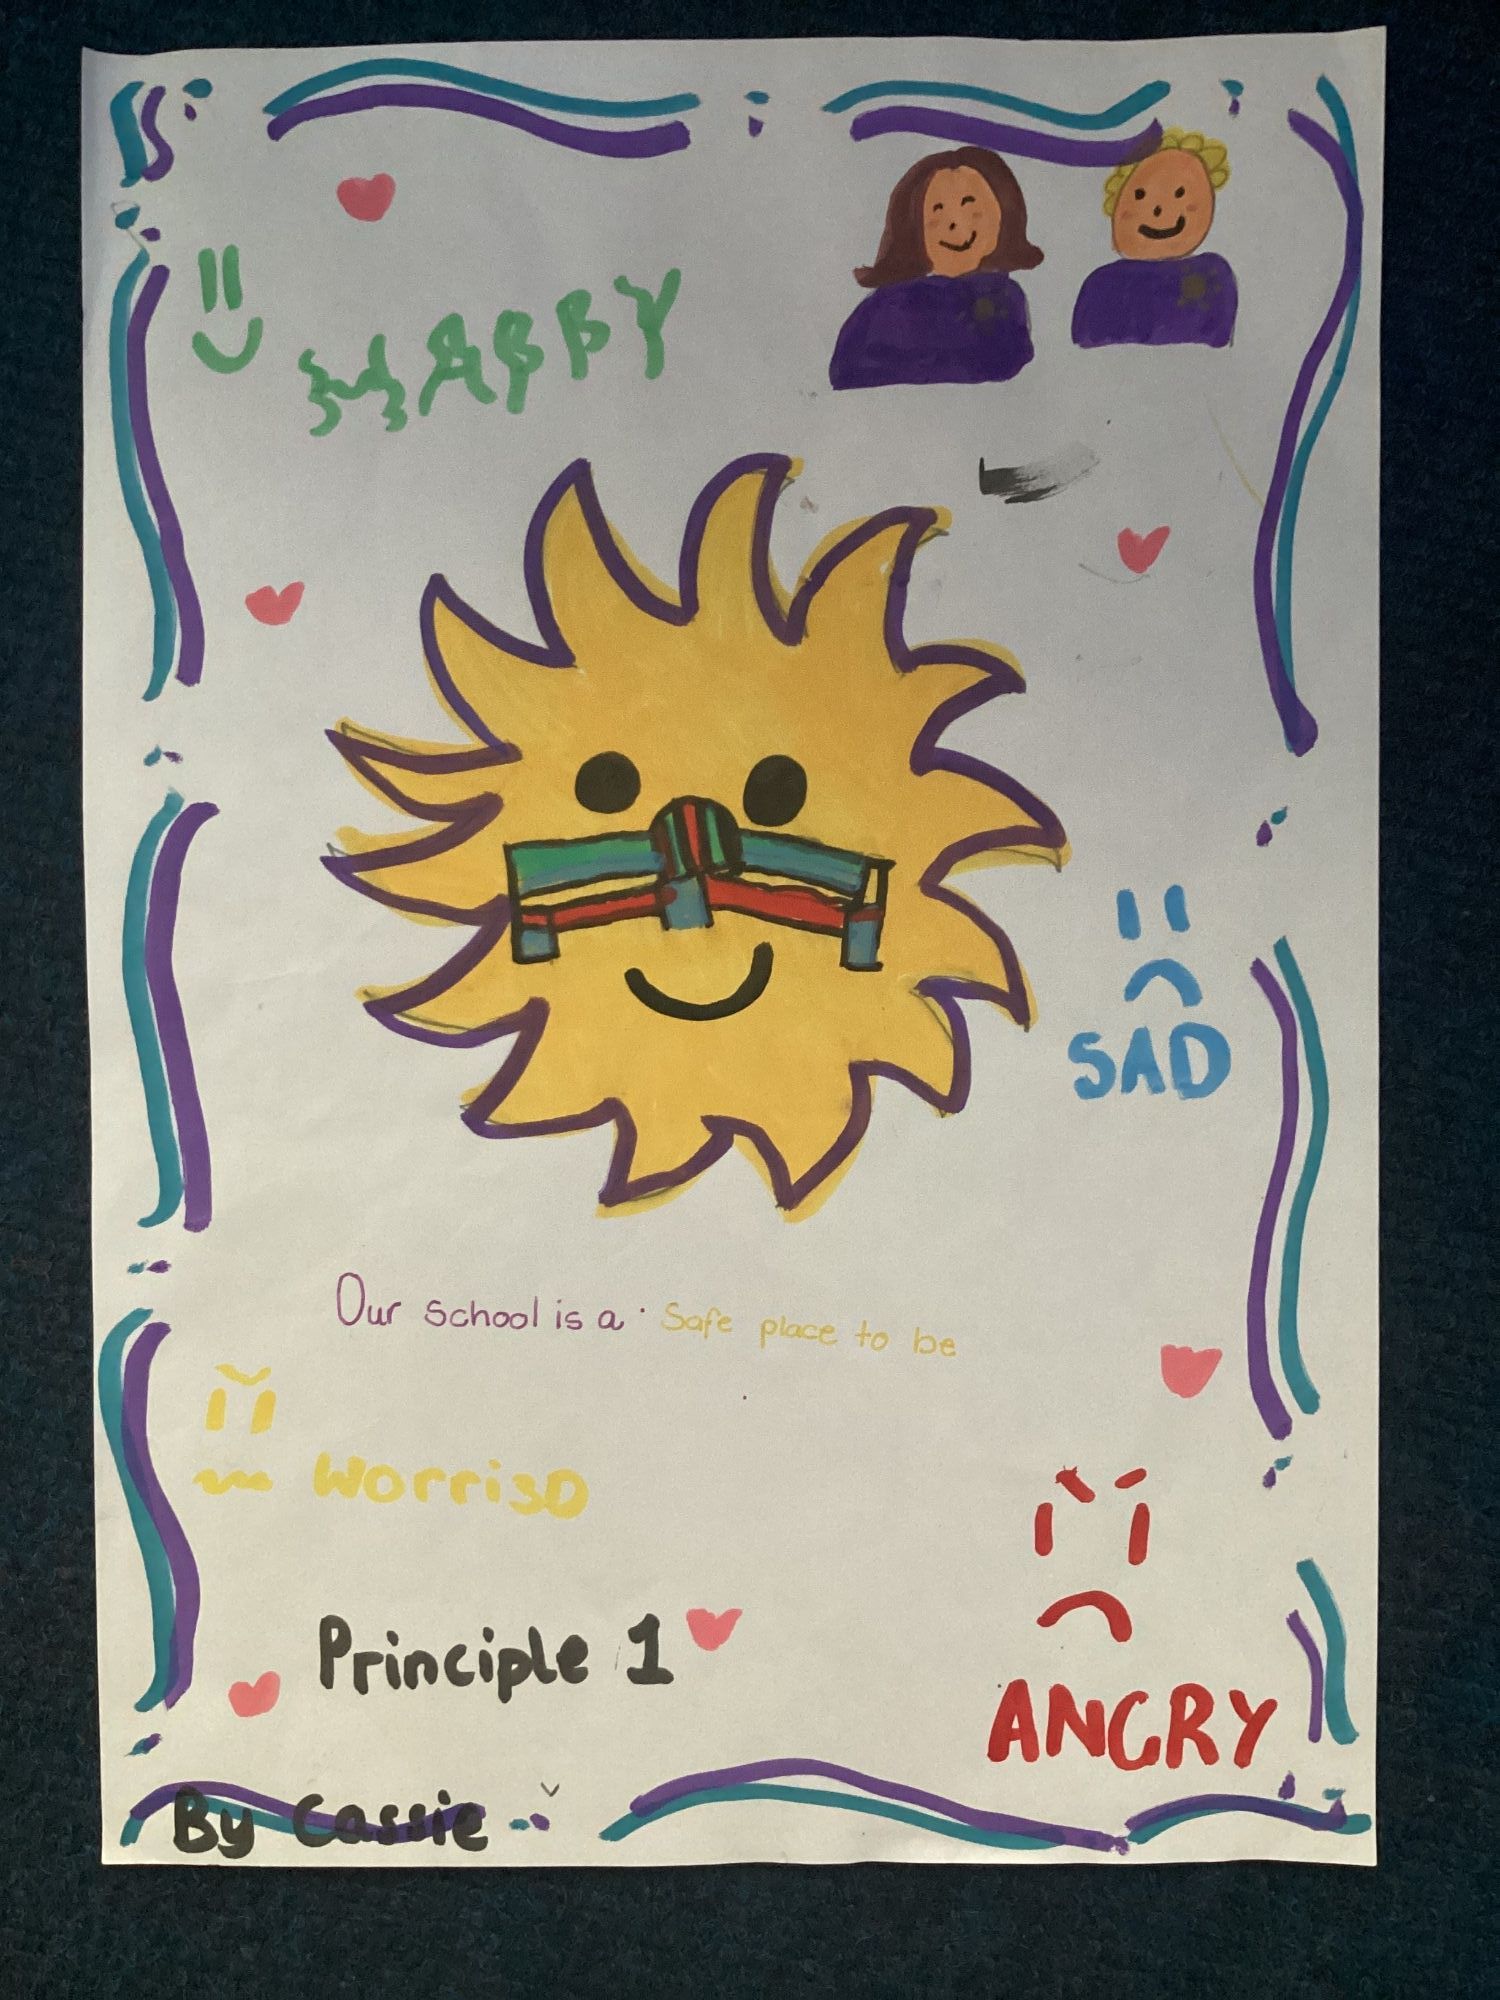 HAPPY
SAD
Our school is a safe place to be
WorrisD
Principle 1
ANGRY
By Cassie